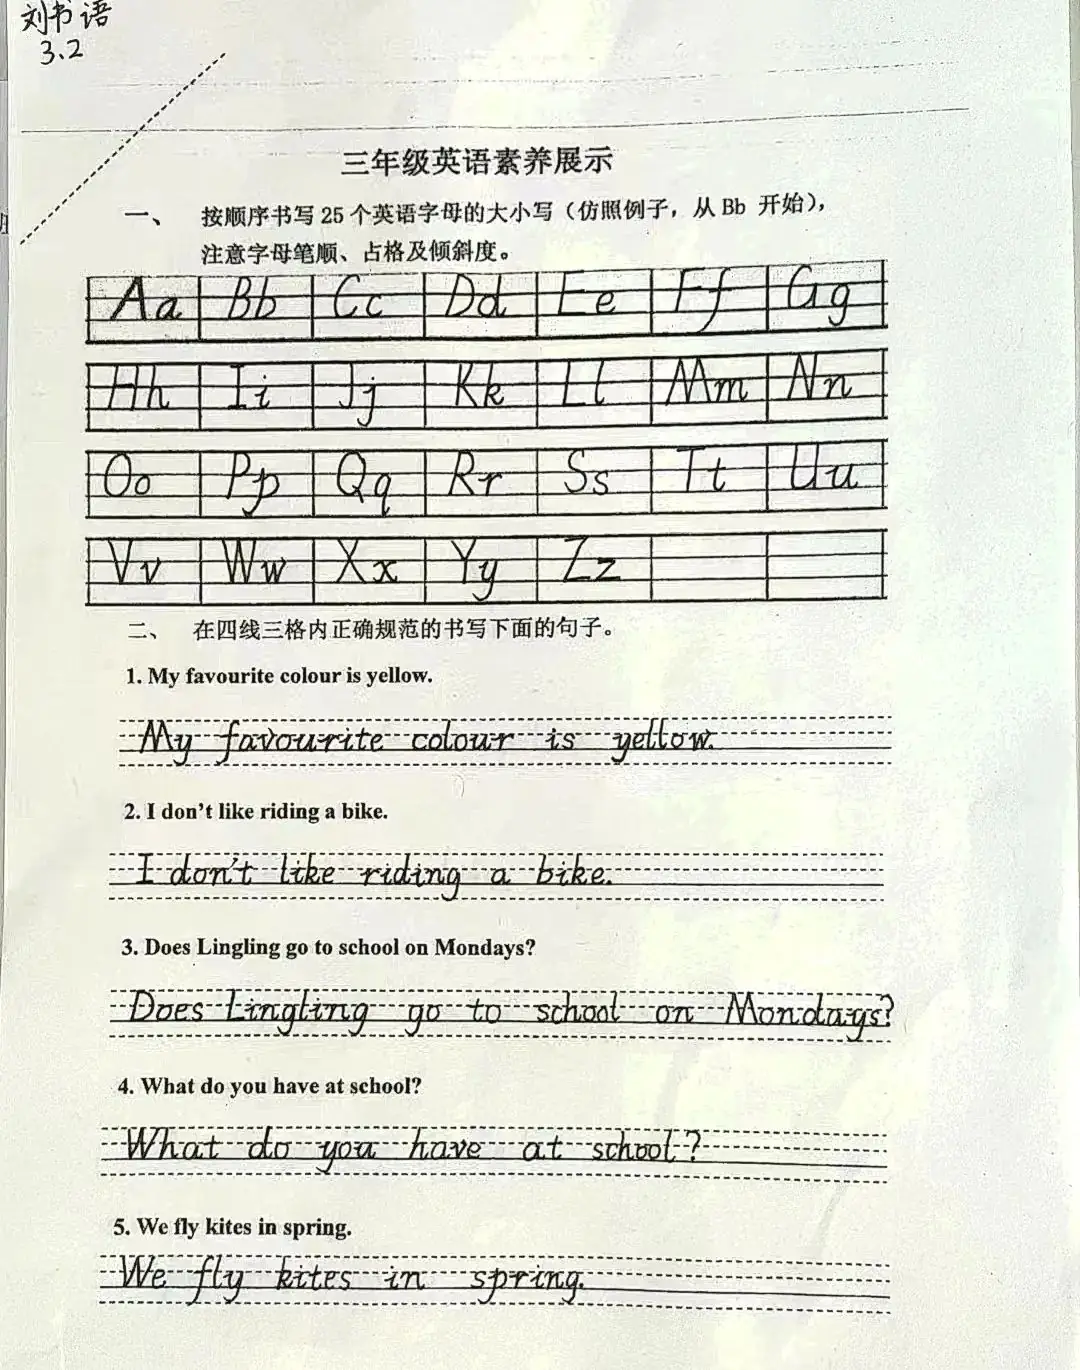 刘书语
3、2
三年级英语素养展示
一、 按顺序书写 25 个英语字母的大小写（仿照例子，从 Bb 开始），
注意字母笔顺、占格及倾斜度。
Aa Bb Cc Dd Ee Ff Gg
Hh Ii Jj Kk Ll Mm Nn
Oo Pp Qq Rr Ss Tt Uu
Vv Ww Xx Yy Zz
二、 在四线三格内正确规范的书写下面的句子。
1. My favourite colour is yellow.
My favourite colour is yellow.
2. I don't like riding a bike.
I don't like riding a bike.
3. Does Lingling go to school on Mondays?
Does Lingling go to school on Mondays?
4. What do you have at school?
What do you have at school?
5. We fly kites in spring.
We fly kites in spring.